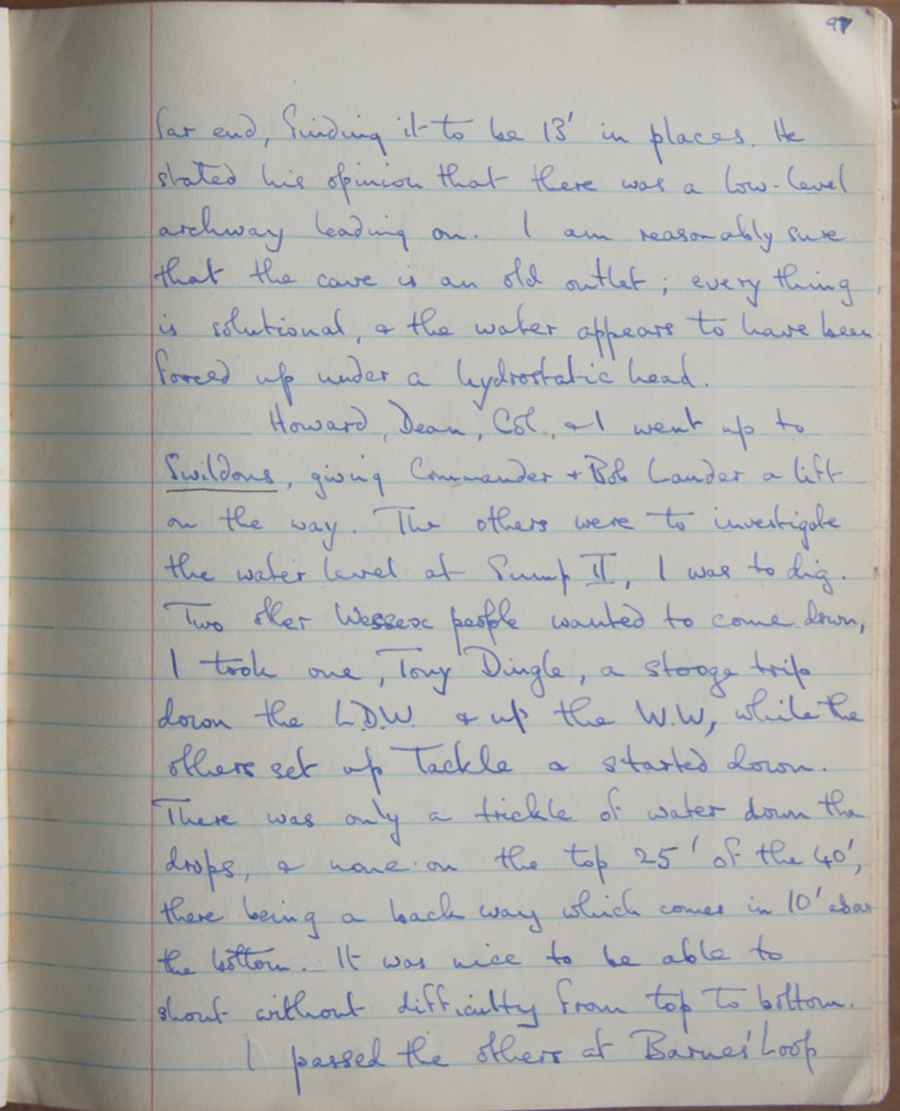 97
far end, finding it to be 13' in places. He
stated his opinion that there was a low-level
archway leading on. I am reasonably sure
that the cave is an old outlet; every thing
is solutional, & the water appears to have been
forced up under a hydrostatic head.
Howard, Dean, Col, & I went up to
Swildons, giving Commander & Bob Lander a lift
on the way. The others were to investigate
the water level at Sump II, I was to dig.
Two other Wessex people wanted to come down,
I took one, Tony Dingle, a stooge trip
down the L.D.W. & up the W.W, while the
others set up Tackle & started down.
There was only a trickle of water down the
drops, & none on the top 25' of the 40',
there being a back way which comes in 10' above
the bottom. It was nice to be able to
shout without difficulty from top to bottom.
I passed the others at Barnes' Loop